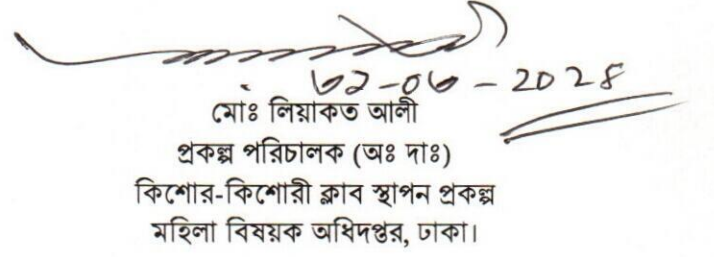 ৩১-০৩-২০২৪
মোঃ লিয়াকত আলী
প্রকল্প পরিচালক (অঃ দাঃ)
কিশোর-কিশোরী ক্লাব স্থাপন প্রকল্প
মহিলা বিষয়ক অধিদপ্তর, ঢাকা।